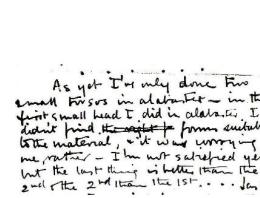 As yet I've only done two
small torsos in alabaster – in the
first small head I did in alabaster I
didn't find the right forms suitable
to the material, & it was worrying
me, rather – I'm not satisfied yet
but the last thing is better than the
2nd & the 2nd than the 1st . . . .